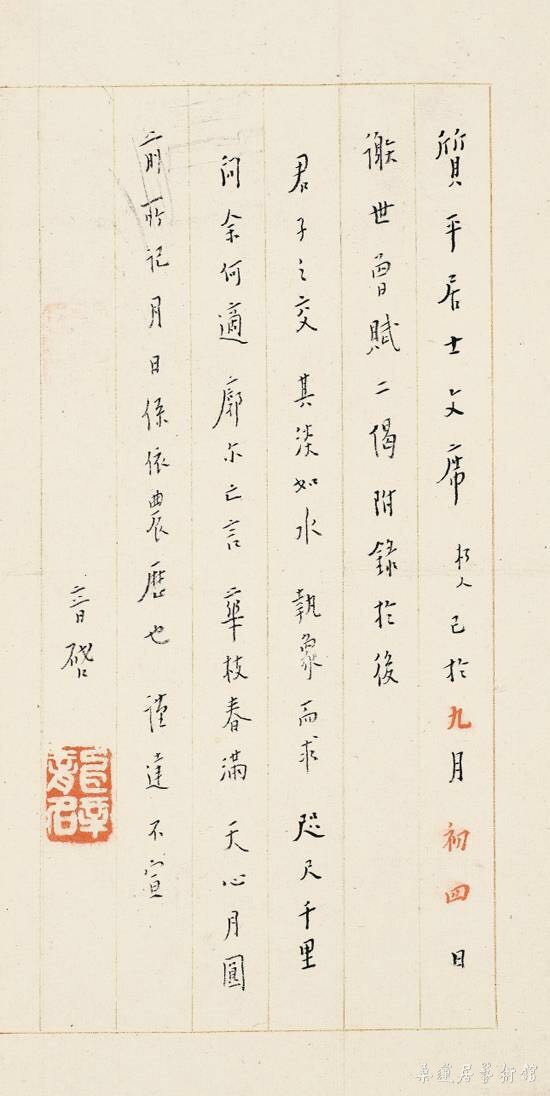 質平居士文席 朽人已於九月初四日
謝世曾賦二偈附錄於後
君子之交 其淡如水 執象而求 咫尺千里
問余何適 廓尒亡言 華枝春滿 天心月圓
前所記月日係依農歷也 謹達不宣
音啓
蓮居藝術館